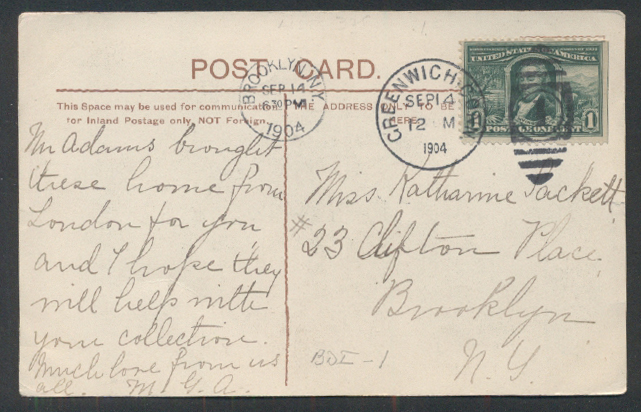 POST CARD.
BROOKLYN, N.Y.
SEP 14
6:30 PM
1904
GREENWICH, CONN.
SEP 14
12 M
1904
UNITED STATES OF AMERICA
1 POSTAGE ONE CENT 1
This Space may be used for communication
for Inland Postage only, NOT Foreign.
THE ADDRESS ONLY TO BE
HERE.
Mr Adams brought
these home from
London for you
and I hope they
will help with
your collection.
Much love from us
all. M. G. A.
Miss Katharine Tackett
# 23 Clifton Place
Brooklyn
N. Y.
BDI-1